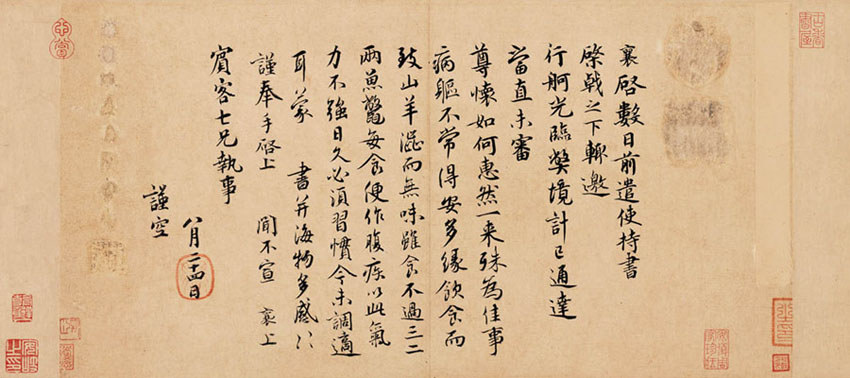 襄啓數日前遣使持書
棨戟之下輙邀
行舸光臨弊境計已通達
當直未審
尊懷如何惠然一来殊為佳事
病軀不常得安多緣飲食而
致山羊澀而無味雖食不過三二
兩魚鱉每食便作腹疾以此氣
力不強日久必須習慣今未調適
耳蒙 書并海物多感〻
謹奉手啓上 聞不宣 襄上
賔客七兄執事
八月二十四日
謹空